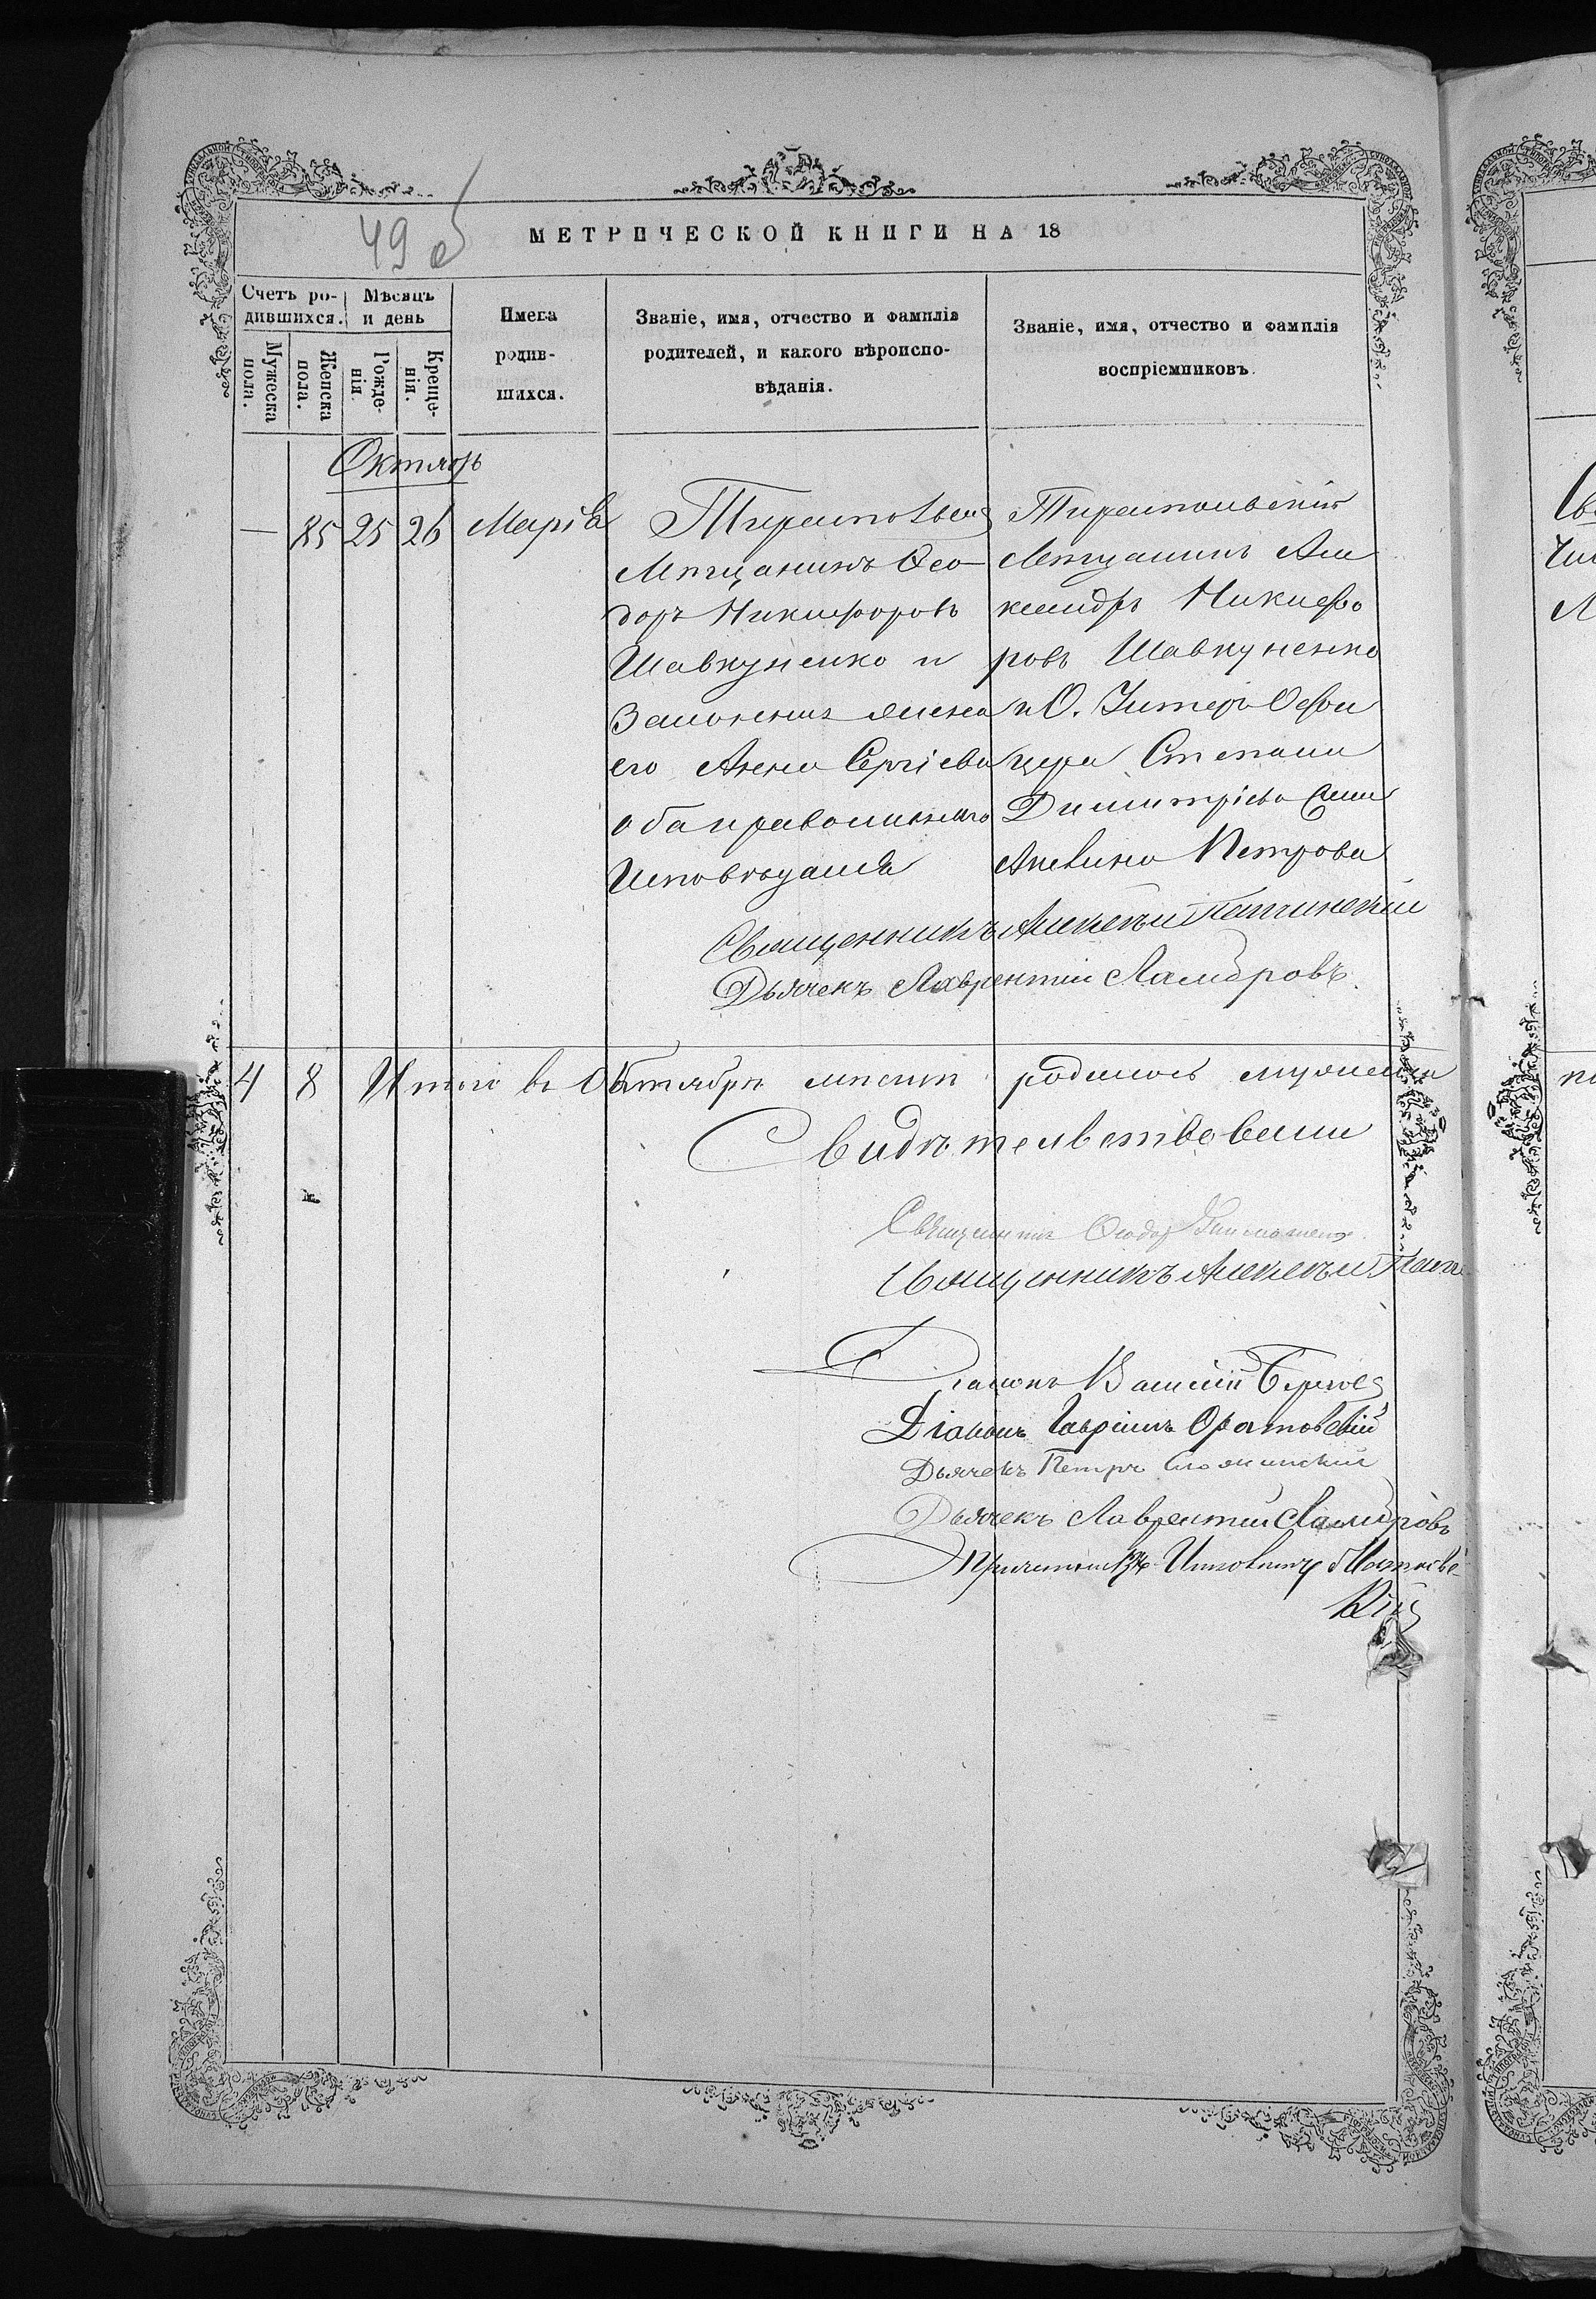 49 об
МЕТРИЧЕСКОЙ КНИГИ НА 18
Счетъ ро-
дившихся.
Мѣсяцъ
и день
Мужеска
пола.
Женска
пола.
Рожде-
нія.
Креще-
нія.
Имена
родив-
шихся.
Званіе, имя, отчество и фамилія
родителей, и какого вѣроиспо-
вѣданія.
Званіе, имя, отчество и фамилія
воспріемниковъ.
Октябрь
— 85 25 26 Марія
Тираспольскій
Мѣщанинъ Ѳео-
доръ Никифоровъ
Шавкуненко и
Законная жена
его Анна Сергіева
оба православнаго
Исповѣданія
Тираспольскій
Мѣщанинъ Але
ксандръ Никифо
ровъ Шавкуненко
и О. Унтеръ Офи
цера Степана
Димитріева
Петрова
Священникъ Алексѣй
Дьячекъ Лаврентій
4 8 Итого въ Октябрѣ мѣсяцѣ родилось мужеска
Свидѣтельствовали
Священникъ Ѳеодоръ
Священникъ Алексѣй
Діаконъ Василій
Діаконъ Гавріилъ Оратовскій
Дьячекъ Петръ
Дьячекъ Лаврентій